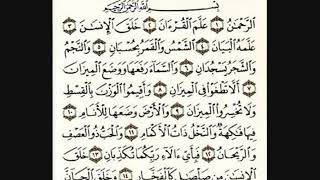 بِسْمِ ٱللَّهِ ٱلرَّحْمَٰنِ ٱلرَّحِيمِ
ٱلرَّحْمَٰنُ ١ عَلَّمَ ٱلْقُرْءَانَ ٢ خَلَقَ ٱلْإِنسَٰنَ ٣
عَلَّمَهُ ٱلْبَيَانَ ٤ ٱلشَّمْسُ وَٱلْقَمَرُ بِحُسْبَانٍ ٥ وَٱلنَّجْمُ
وَٱلشَّجَرُ يَسْجُدَانِ ٦ وَٱلسَّمَآءَ رَفَعَهَا وَوَضَعَ ٱلْمِيزَانَ
٧ أَلَّا تَطْغَوْا۟ فِى ٱلْمِيزَانِ ٨ وَأَقِيمُوا۟ ٱلْوَزْنَ بِٱلْقِسْطِ
وَلَا تُخْسِرُوا۟ ٱلْمِيزَانَ ٩ وَٱلْأَرْضَ وَضَعَهَا لِلْأَنَامِ ١٠
فِيهَا فَٰكِهَةٌ وَٱلنَّخْلُ ذَاتُ ٱلْأَكْمَامِ ١١ وَٱلْحَبُّ ذُو ٱلْعَصْفِ
وَٱلرَّيْحَانُ ١٢ فَبِأَىِّ ءَالَآءِ رَبِّكُمَا تُكَذِّبَانِ ١٣ خَلَقَ
ٱلْإِنسَٰنَ مِن صَلْصَٰلٍ كَٱلْفَخَّارِ ١٤ وَخَلَقَ ٱلْجَآنَّ